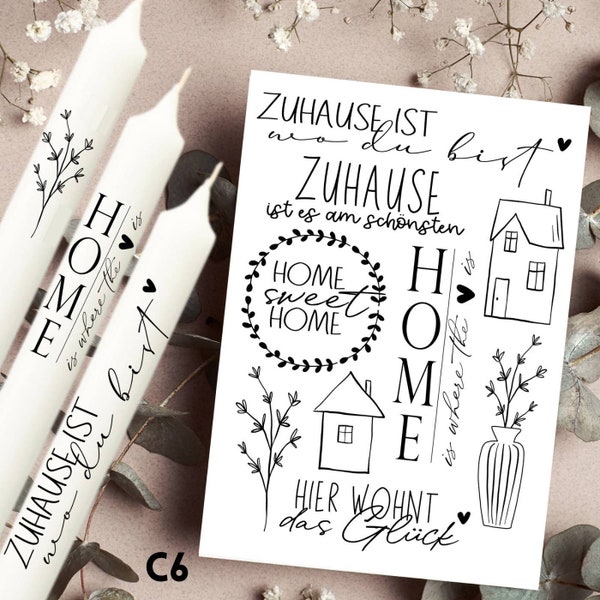 ZUHAUSE IST
wo du bist
ZUHAUSE
ist es am schönsten
HOME
sweet
HOME
HOME
is where the is
HIER WOHNT
das Glück
HOME
is where the is
ZUHAUSE IST
wo du bist
C6